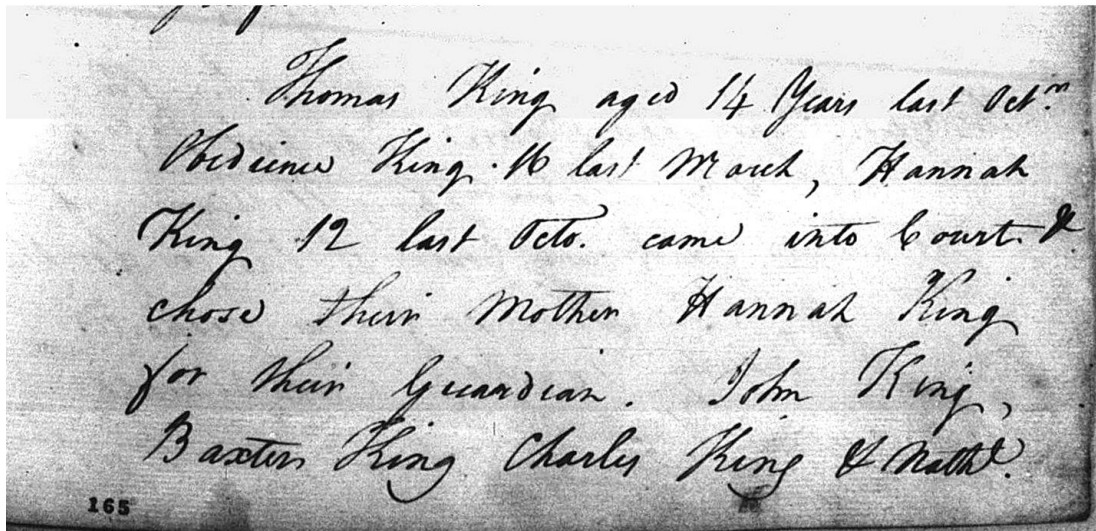 Thomas King aged 14 Years last Octr.
Obedience King. 16 last March, Hannah
King 12 last Octo. came into Court &
chose their Mother Hannah King
for their Guardian. John King,
Baxter King Charles King & Nathl.
165